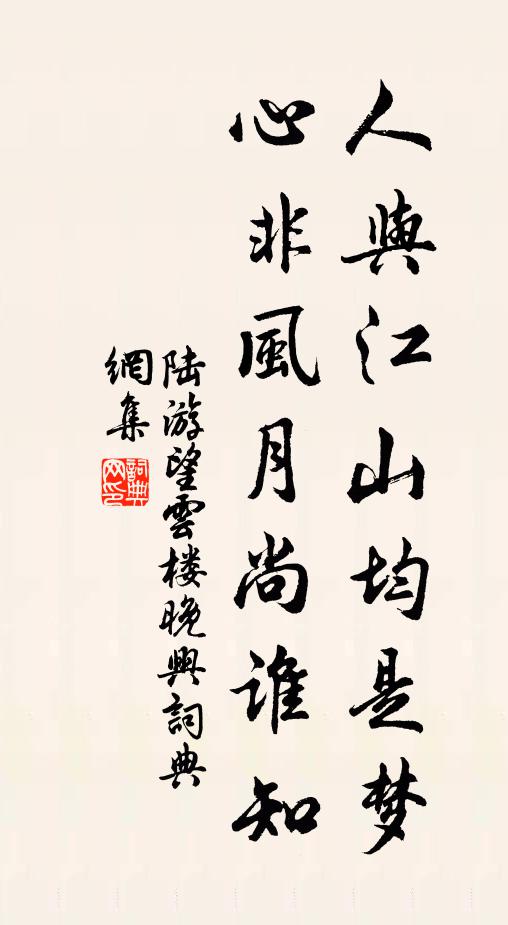 人與江山均是梦
心非風月尚谁知
陆游望雲楼晚興詞典
網集
詞典网印